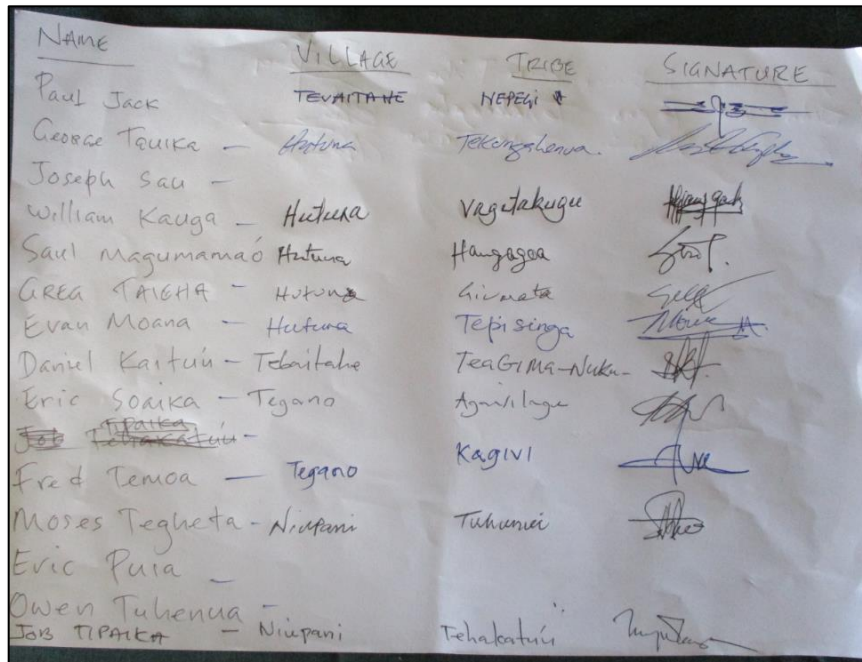 NAME VILLAGE TRIBE SIGNATURE
Paul Jack TEVAITAHE NEPEGI
George Tauika - Hutuna Tekongahenua.
Joseph Sau -
William Kauga - Hutuna Vagutakugu
Saul Magumamaó Hutuna Hangagea
GREG TAIGHA - Hutuna
Evan Moana - Hutuna Tepisinga
Daniel Kaituú - Tebaitahe TeaGima-Nuku-
Eric Soaika - Tegano
Job Tipaika -
Fred Temoa - Tegano Kagivi
Moses Tegheta - Niupani
Eric Puia -
Owen Tuhenua -
JOB TIPAIKA - Niupani Tehakatuú